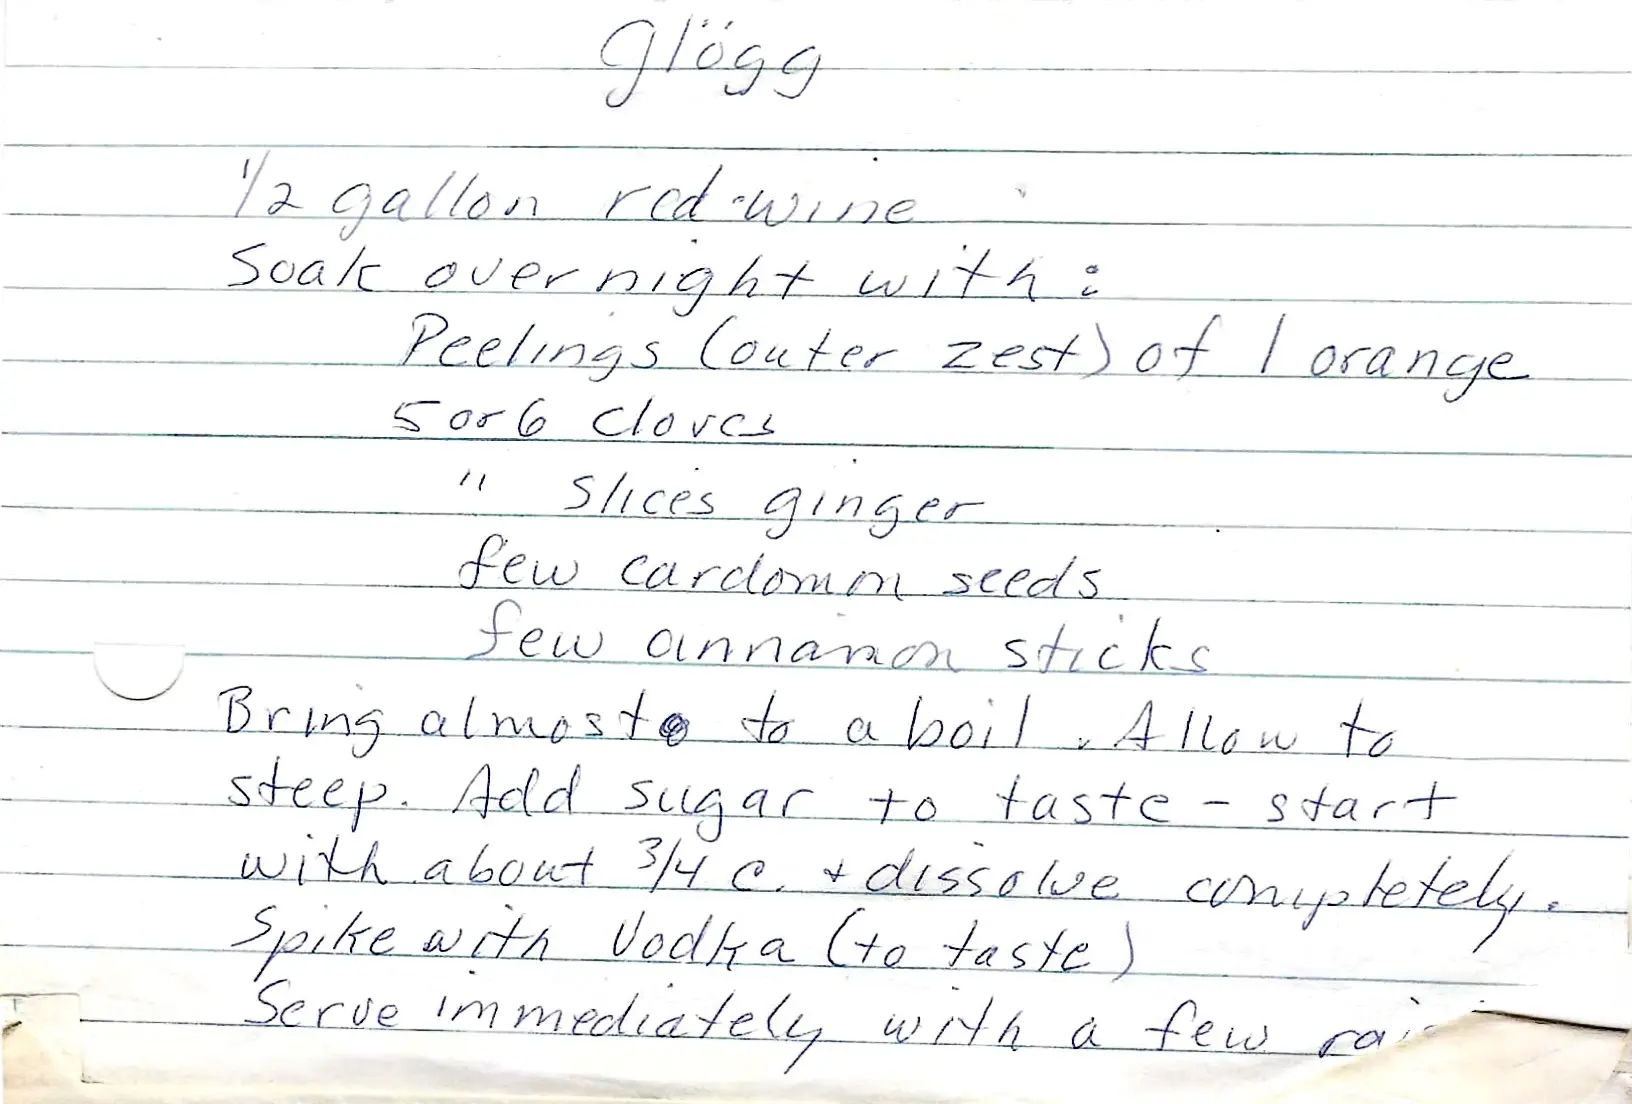 Glögg
1/2 gallon red wine
Soak overnight with:
Peelings (outer zest) of 1 orange
5 or 6 cloves
" slices ginger
few cardomm seeds
few cinnamon sticks
Bring almost to a boil. Allow to
steep. Add sugar to taste - start
with about 3/4 c. + dissolve completely.
Spike with Vodka (to taste)
Serve immediately with a few